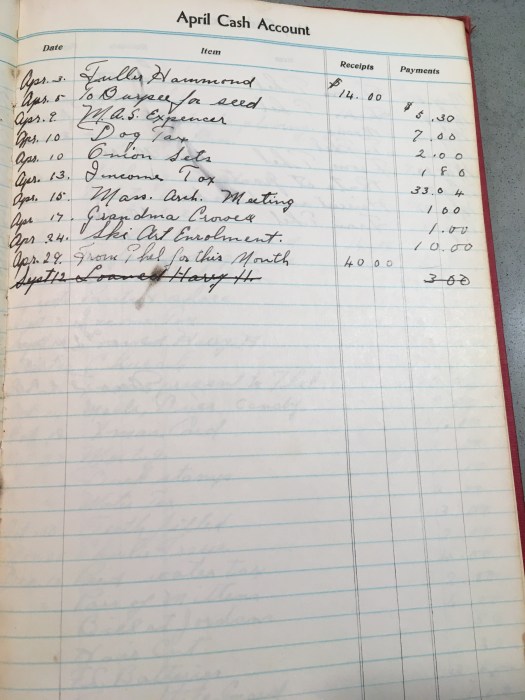 April Cash Account
Date Item Receipts Payments
Apr. 3. Fuller Hammond $ 14.00
Apr. 5 To Burpee for seed $ 5.30
Apr. 9 M.A.S. Expencer 7.00
Apr. 10 Dog Tax 2.00
Apr. 10 Onion Sets 1 80
Apr. 13. Income Tax 33.04
Apr. 15. Mass. Arch. Meeting 1 00
Apr. 17. Grandma 1.00
Apr 24. Ski Art Enrolment. 10.00
Apr. 29. From Phil for this Month 40 00
Sept 12 Loaned Harry H. 3 00